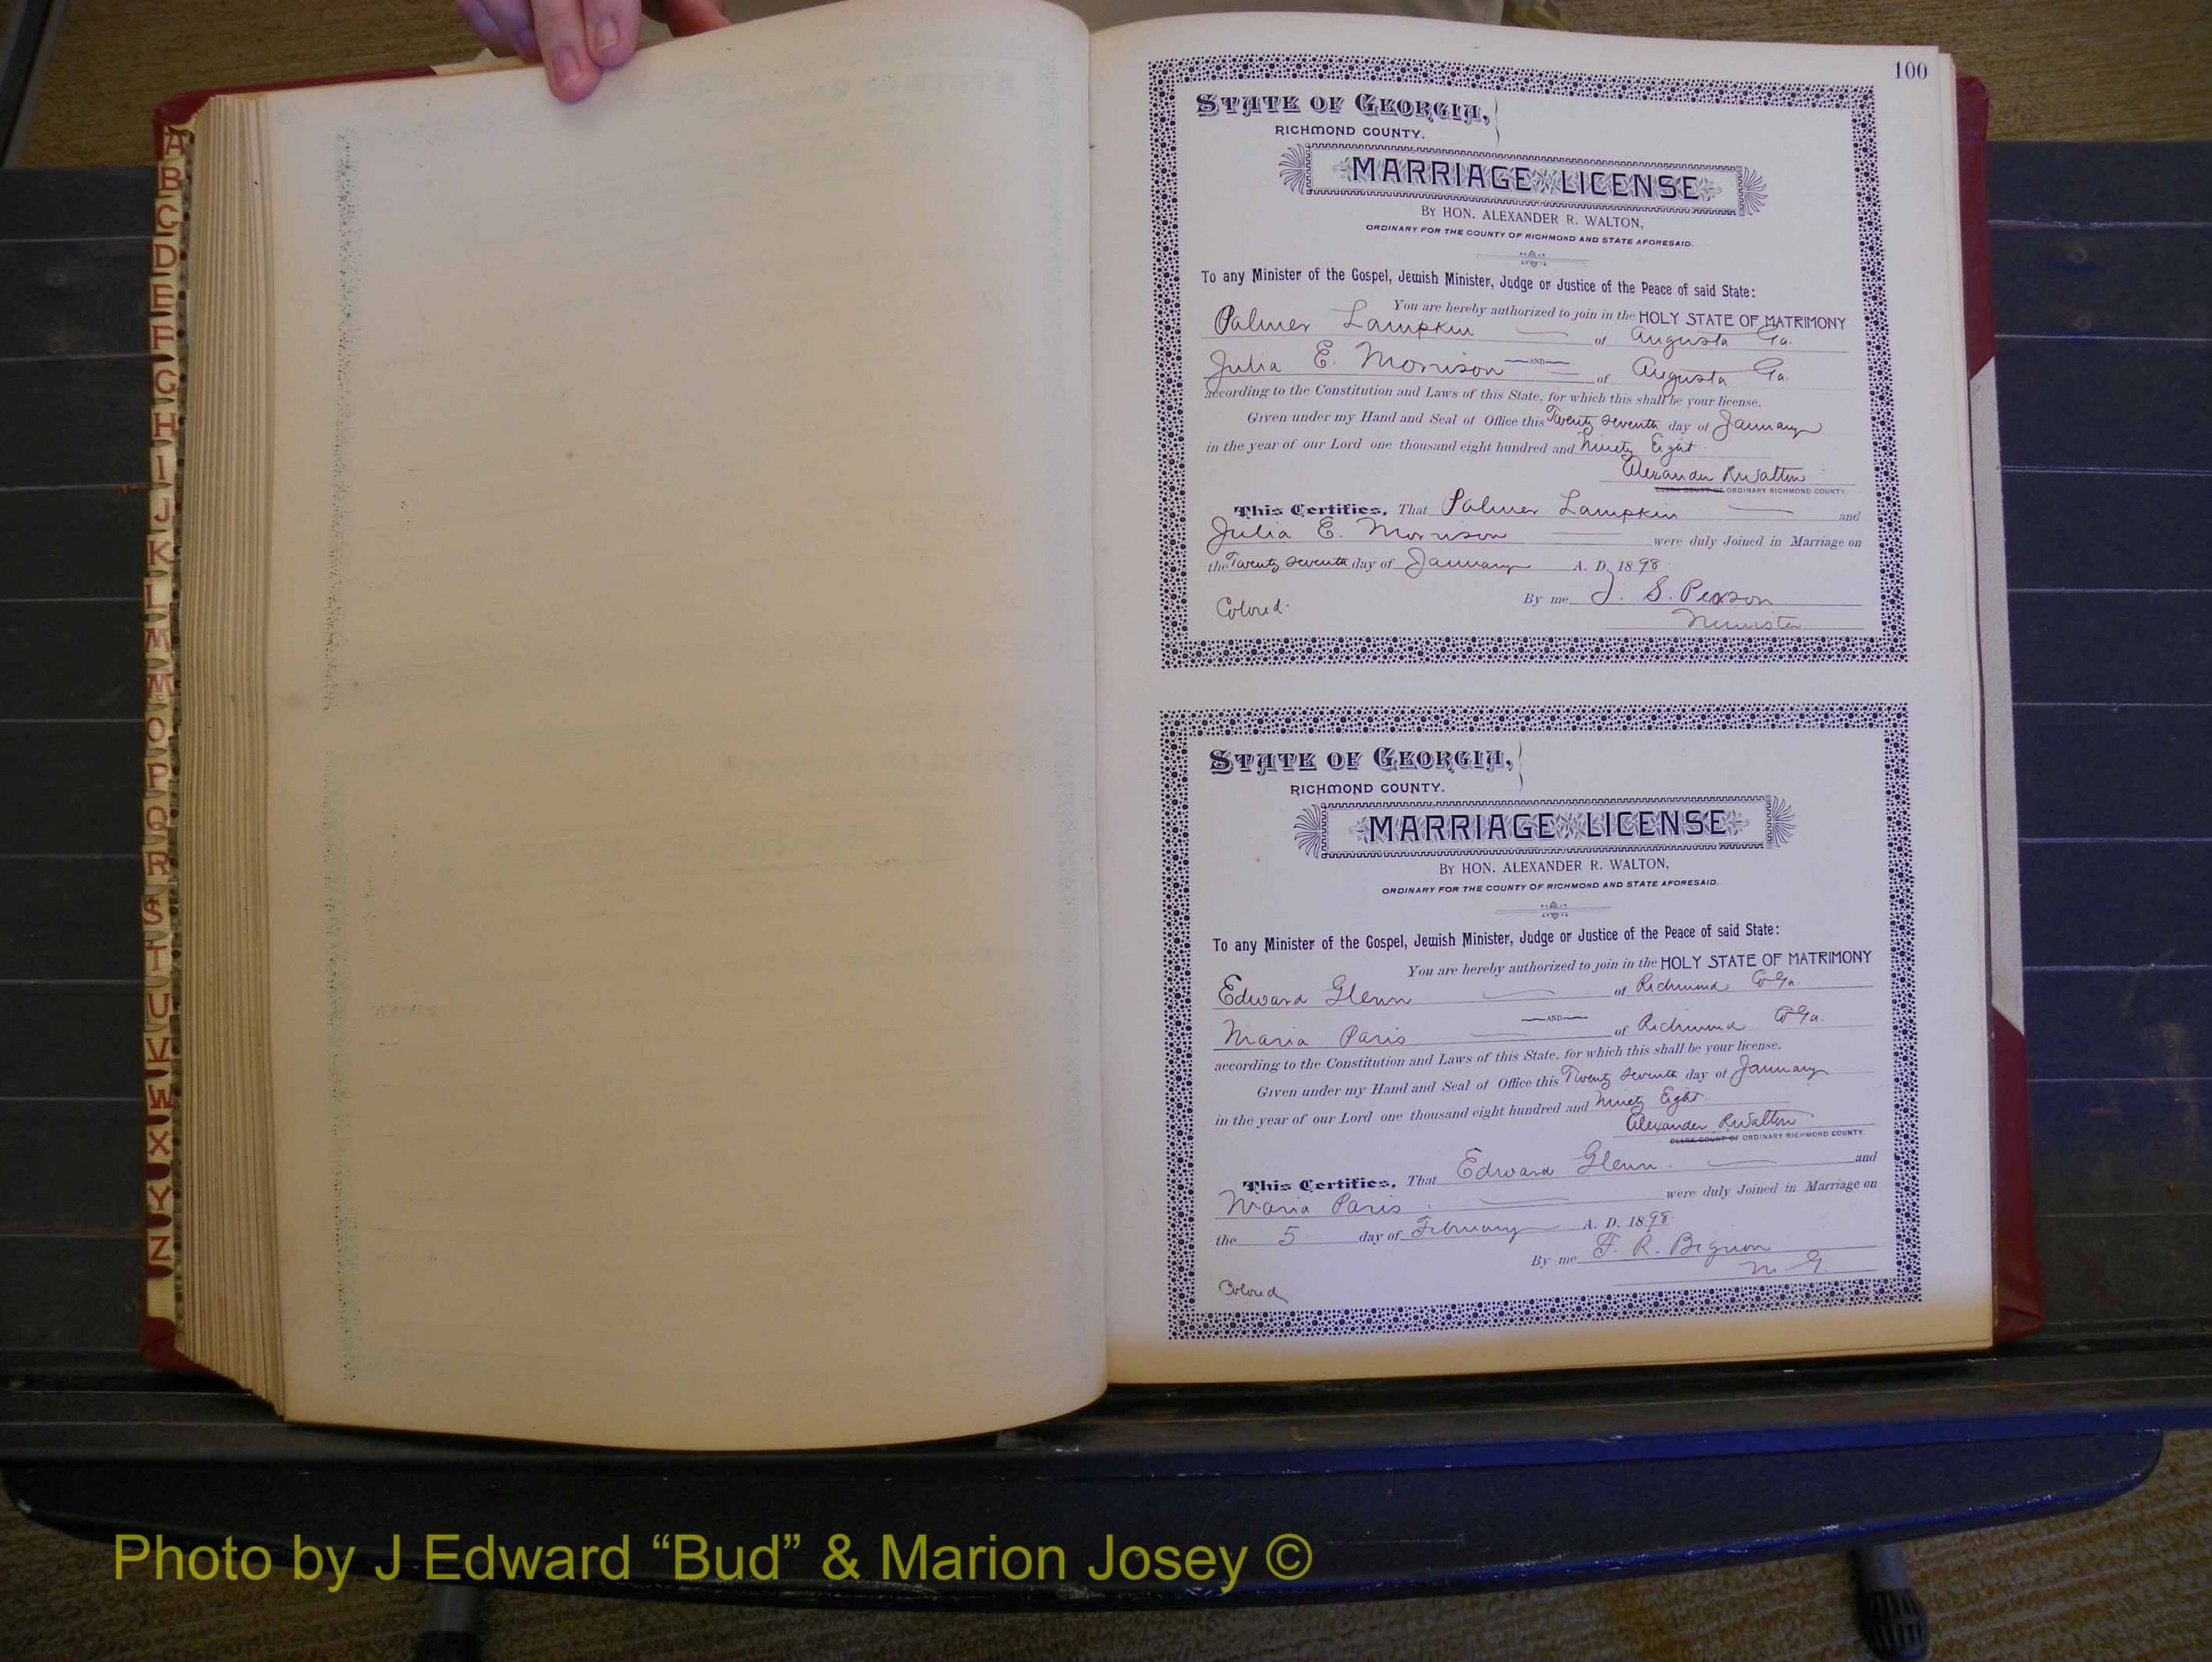 A
B
C
D
E
F
G
H
I
J
K
L
M
M
O
P
Q
R
S
T
U
V
W
X
Y
Z
100
STATE OF GEORGIA,
RICHMOND COUNTY.
MARRIAGE LICENSE
BY HON. ALEXANDER R. WALTON,
ORDINARY FOR THE COUNTY OF RICHMOND AND STATE AFORESAID.
To any Minister of the Gospel, Jewish Minister, Judge or Justice of the Peace of said State:
You are hereby authorized to join in the HOLY STATE OF MATRIMONY
Palmer Lampkin of Augusta Ga.
AND
Julia E. Morrison of Augusta Ga.
according to the Constitution and Laws of this State, for which this shall be your license.
Given under my Hand and Seal of Office this Twenty seventh day of January
in the year of our Lord one thousand eight hundred and Ninety Eight
Alexander R Walton
CLERK COURT OF ORDINARY RICHMOND COUNTY.
This Certifies, That Palmer Lampkin and
Julia E. Morrison were duly Joined in Marriage on
the Twenty seventh day of January A. D. 1898
Colored. By me J. S. Pexson
Minister
STATE OF GEORGIA,
RICHMOND COUNTY.
MARRIAGE LICENSE
BY HON. ALEXANDER R. WALTON,
ORDINARY FOR THE COUNTY OF RICHMOND AND STATE AFORESAID.
To any Minister of the Gospel, Jewish Minister, Judge or Justice of the Peace of said State:
You are hereby authorized to join in the HOLY STATE OF MATRIMONY
Edward Glenn of Richmond Co Ga.
AND
Maria Paris of Richmond Co Ga.
according to the Constitution and Laws of this State, for which this shall be your license.
Given under my Hand and Seal of Office this Twenty Seventh day of January
in the year of our Lord one thousand eight hundred and Ninety Eight.
Alexander R Walton
CLERK COURT OF ORDINARY RICHMOND COUNTY.
This Certifies, That Edward Glenn. and
Maria Paris were duly Joined in Marriage on
the 5 day of February A. D. 1898
By me F. R. Bignon
M. G.
Colored
Photo by J Edward “Bud” & Marion Josey ©